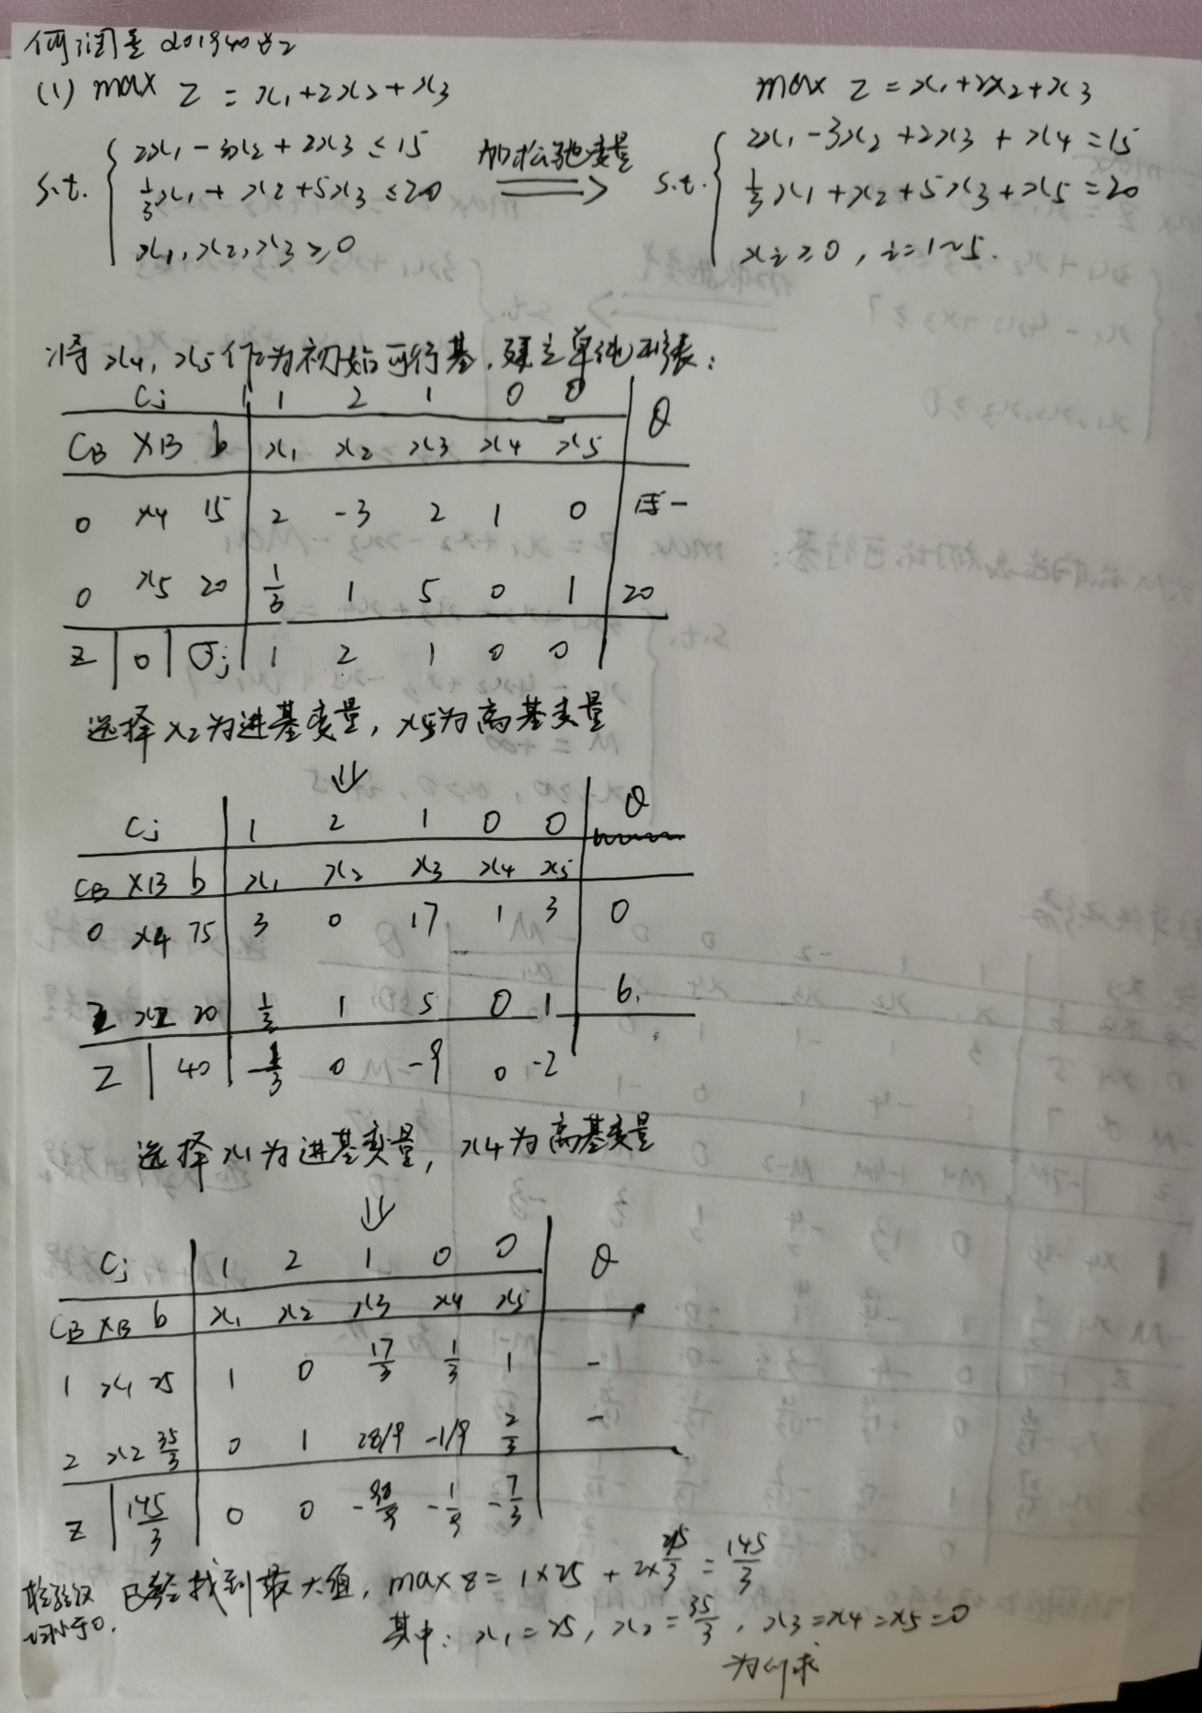 (1) max z = x₁+2x₂+x₃
s.t. { 2x₁-3x₂+2x₃≤15
⅓x₁+x₂+5x₃≤20
x₁,x₂,x₃≥0
加松弛变量 ⟹
max z = x₁+2x₂+x₃
s.t. { 2x₁-3x₂+2x₃+x₄=15
⅓x₁+x₂+5x₃+x₅=20
xi≥0, i=1~5.
将x₄,x₅作为初始可行基,建立单纯形表:
Cj 1 2 1 0 0 θ
CB XB b x₁ x₂ x₃ x₄ x₅
0 x₄ 15 2 -3 2 1 0 -
0 x₅ 20 ⅓ 1 5 0 1 20
z 0 σj 1 2 1 0 0
选择x₂为进基变量, x₅为离基变量
⇓
Cj 1 2 1 0 0 θ
CB XB b x₁ x₂ x₃ x₄ x₅
0 x₄ 75 3 0 17 1 3 0
2 x₂ 20 ⅓ 1 5 0 1 6.
z 40 ⅓ 0 -9 0 -2
选择x₁为进基变量, x₄为离基变量
⇓
Cj 1 2 1 0 0 θ
CB XB b x₁ x₂ x₃ x₄ x₅
1 x₁ 25 1 0 17/3 1/3 1 -
2 x₂ 35/3 0 1 28/9 -1/9 2/3 -
z 145/3 0 0 - -1/9 -7/3
已经找到最大值, max z = 1×25 + 2×35/3 = 145/3
其中: x₁=25, x₂=35/3, x₃=x₄=x₅=0
为所求